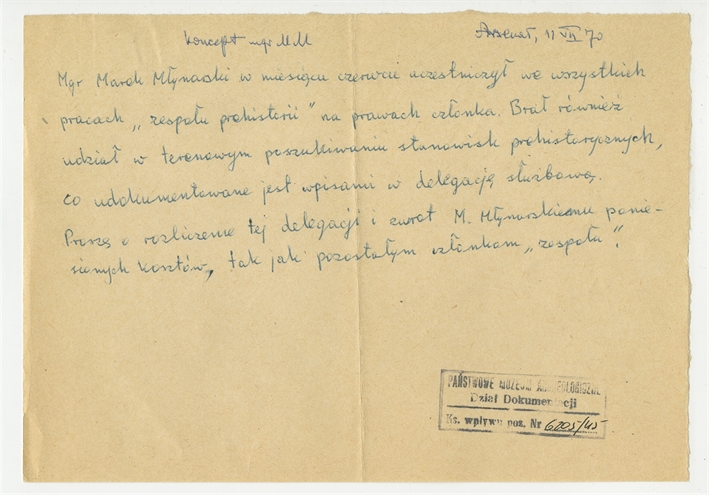 Koncept mgr MM
Arsenał, 11 VII 70
Mgr Marek Młynarski w miesiącu czerwcu uczestniczył we wszystkich
pracach „zespołu prehistorii" na prawach członka. Brał również
udział w terenowym poszukiwaniu stanowisk prahistorycznych,
co udokumentowane jest wpisami w delegację służbową.
Proszę o rozliczenie tej delegacji i zwrot M. Młynarskiemu ponie-
sionych kosztów, tak jak pozostałym członkom „zespołu".
PAŃSTWOWE MUZEUM ARCHEOLOGICZNE
Dział Dokumentacji
Ks. wpływu poz. Nr 6205/45